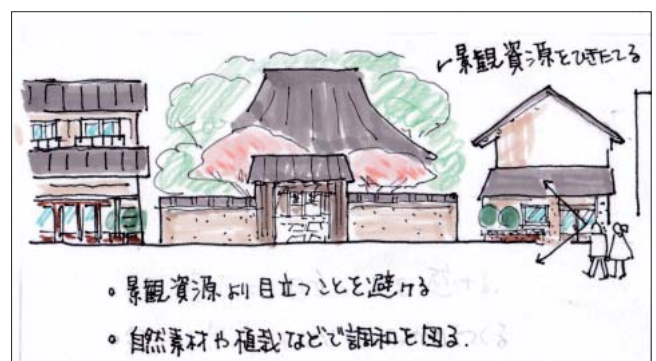 景観資源をひきたてる
• 景観資源より目立つことを避ける
• 自然素材や植栽などで調和を図る.